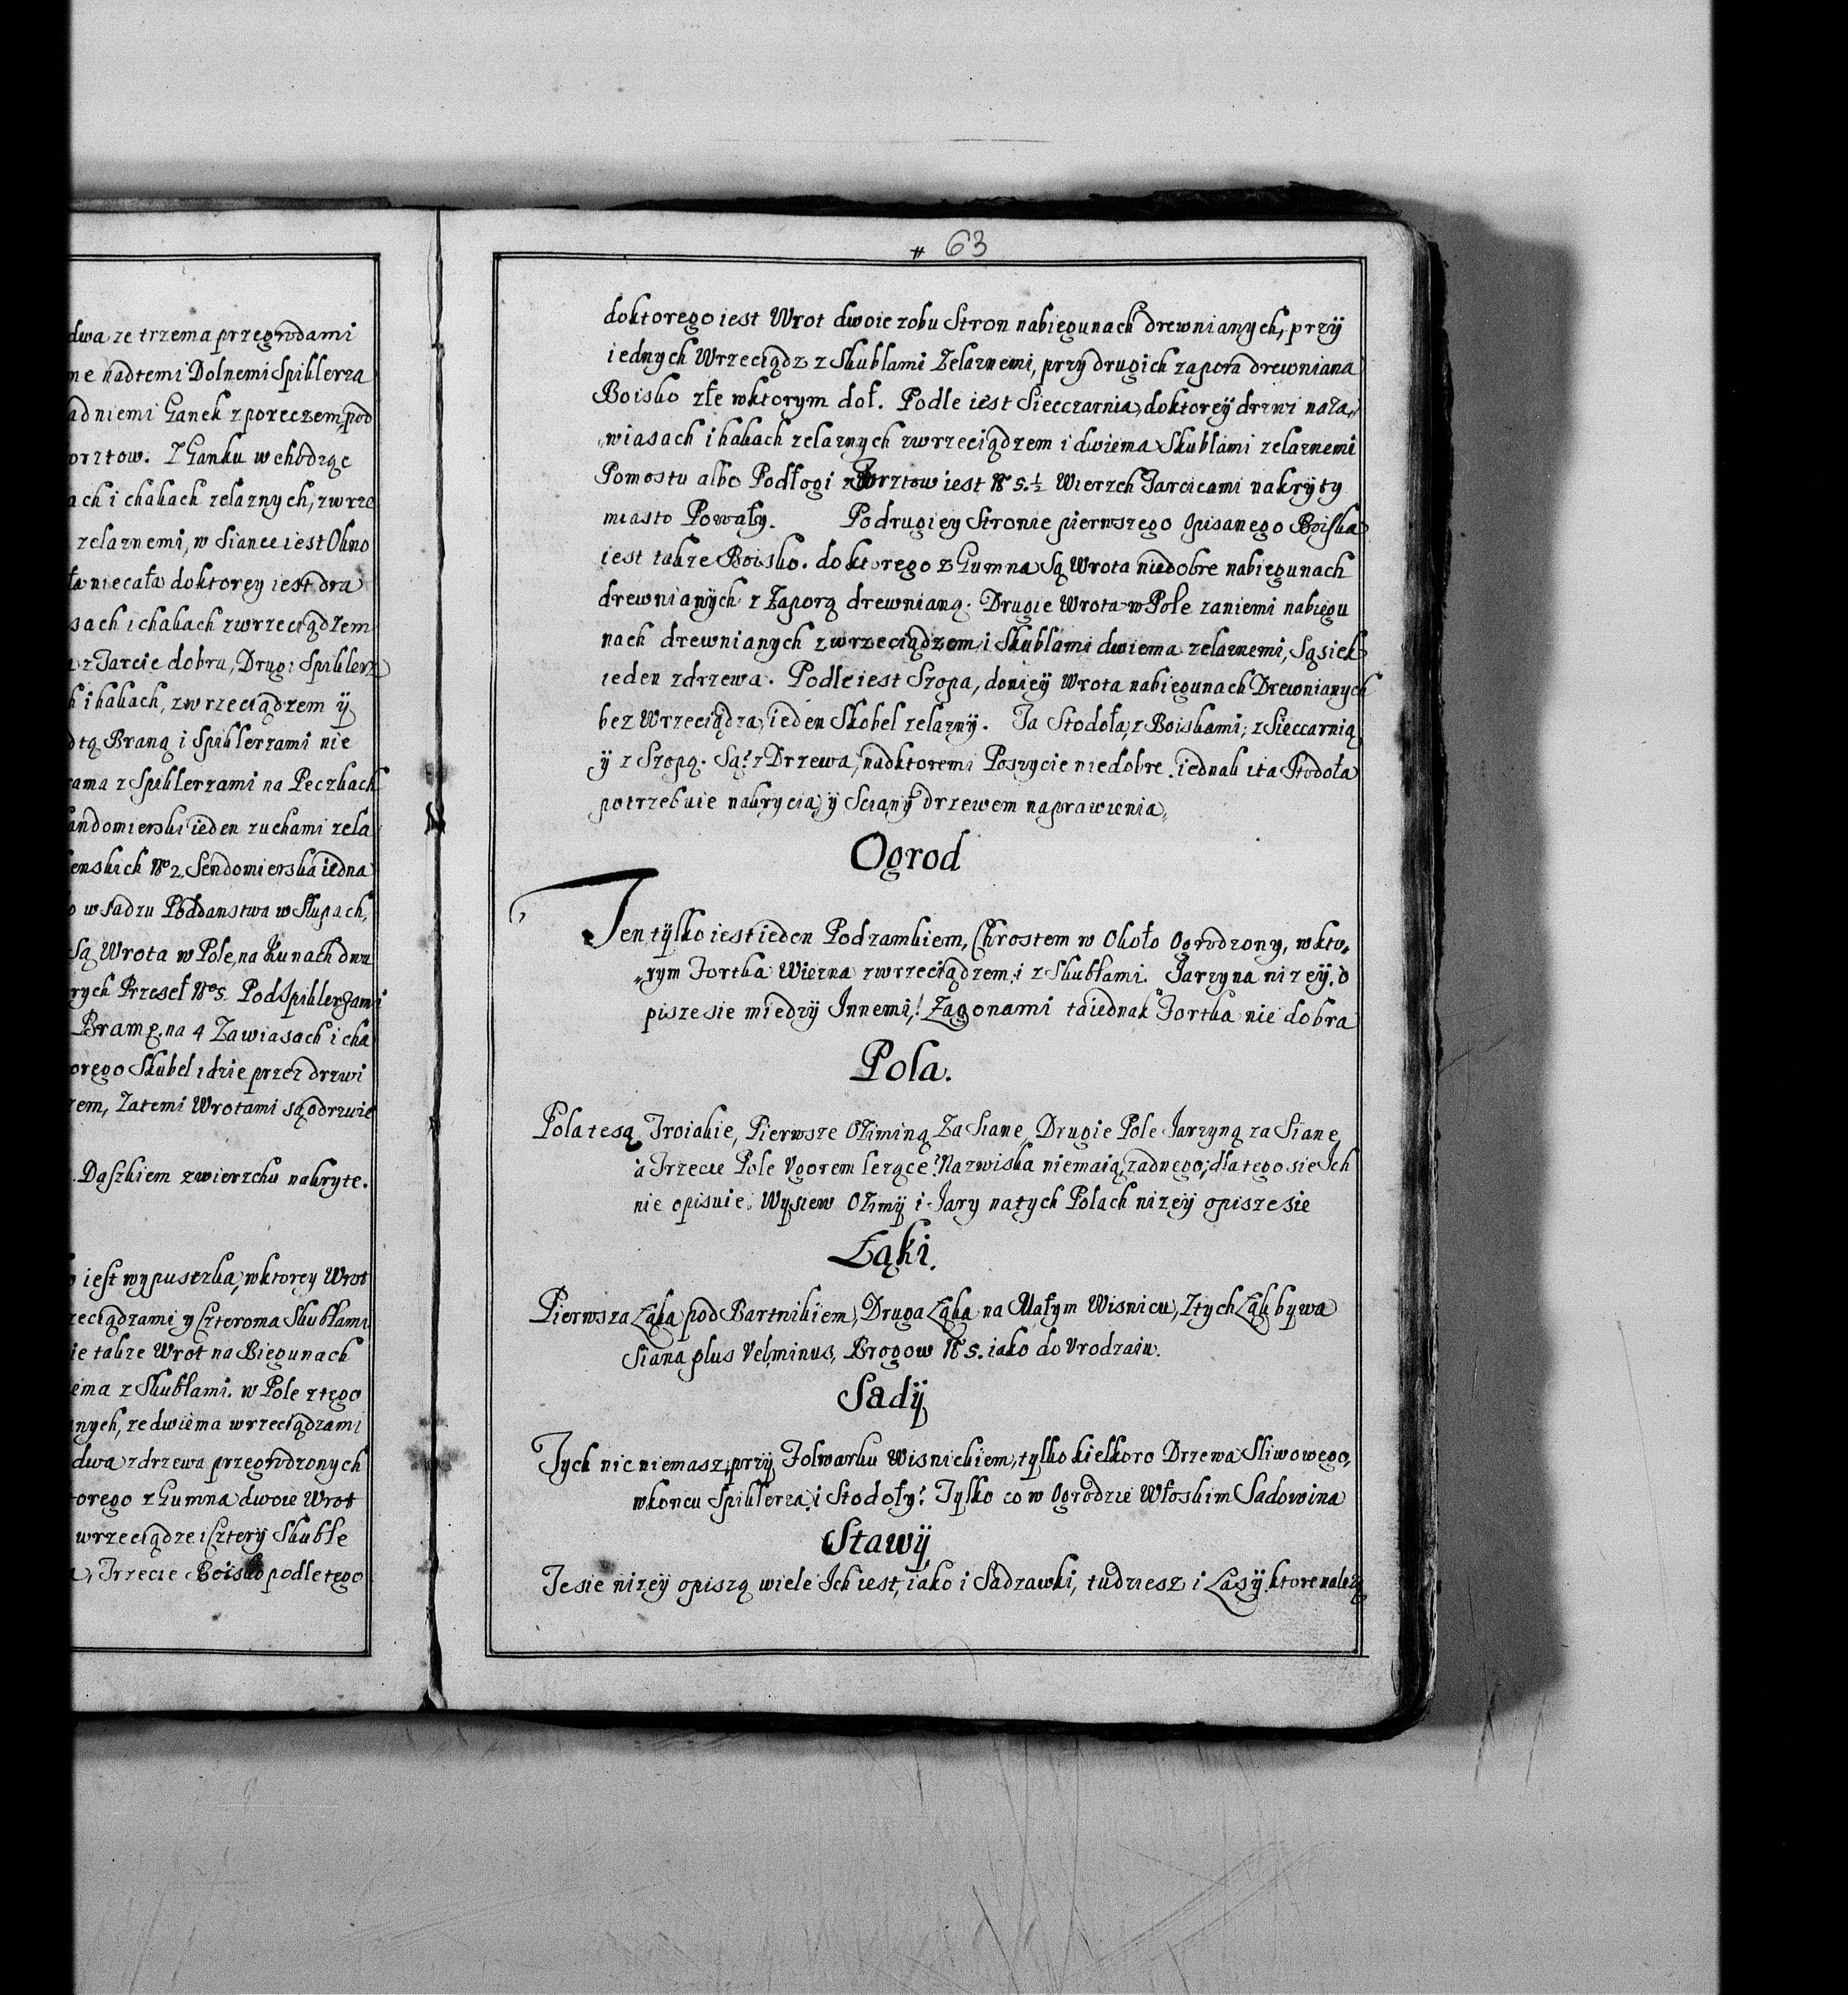 dwa ze trzema przegrodami
ne nadtemi Dolnemi Spiklerza
adniemi Ganek z poreczem, pod
orztow. Z Ganku wchodząc
ach i chakach zelaznych, zwrze
zelaznemi, w Siance iest Okno
ła niecała doktorey iest dra
sach i chakach zwrzeciądzem
a z Tarcic dobra, Drugi Spiklerz
k i hakach, zwrzeciądzem ÿ
dtą Braną i Spiklerzami nie
rama z Spiklerzami na Peczkach
andomierski ieden zuchami zela
enskich No 2. Sendomierska iedna
o wsadzu Poddanstwa w Słupach,
Są Wrota w Pole, na Kunach dwu
rych Przeseł No 5. Pod Spiklerzami
Bramę, na 4 Zawiasach i cha
orego Skubel idzie przez drzwi
zem, Zatemi Wrotami są odrzwie
Daszkiem zwierzchu nakryte.
o iest wypustzka, wktorey Wrot
zeciądzami y Czteroma Skubłami
ie takze Wrot na Biegunach
ema z Skubłami. w Pole ztego
nych, zedwiema wrzeciądzami
dwa zdrzewa przegrodzonych
torego z Gumna dwoie Wrot
wrzeciądze i Czterÿ Skuble
a, Trzecie Boisko podletego
# 63
doktorego iest Wrot dwoie zobu Stron nabiegunach drewnianych, przÿ
iednych Wrzeciądz z Skublami Zelaznemi, przÿ drugich zapora drewniana
Boisko złe wktorym doł. Podle iest Siecczarnia, doktoreÿ drzwi naza,,
,,wiasach i hakach zelaznych zwrzeciądzem i dwiema Skublami zelaznemi
Pomostu albo Podłogi z Forztow iest No 5.½ Wierzch Tarcicami nakrÿty
miasto Powały. Podrugiey Stronie pierwszego Opisanego Boiska
iest takze Boisko. doktorego z Gumna Są Wrota niedobre nabiegunach
drewnianÿch z Zaporą drewnianą. Drugie Wrota w Pole zaniemi nabiegu
nach drewnianych zwrzeciądzem i Skublami dwiema zelaznemi, Sąsiek
ieden zdrzewa. Podle iest Szopa, donieÿ Wrota nabiegunach Drewnianych
bez Wrzeciądza, ieden Skobel zelaznÿ. Ta Stodoła, z Boiskami, z Sieccarnią
ÿ z Szopą. Są z Drzewa, nadktoremi Poszycie niedobre. iednak ita Stodoła
potrzebuie nakrycia, ÿ Scianÿ drzewem naprawienia,
Ogrod
Ten tÿlko iest ieden Podzamkiem, Chrostem w Około Ogrodzony, wkto,,
,,rym Fortka Wiezna zwrzeciądzem i z Skubłami. Jarzyna nizeÿ o
piszesie miedzÿ Innemi, Zagonami ta iednak Fortka nie dobra
Pola.
Pola te są Troiakie, Pierwsze Oziminą Zasiane, Drugie Pole Jarzyną zasiane,
a Trzecie Pole Vgorem lezące. Nazwiska niemaią zadnego, dlategosie Ich
nie opisuie. Wysiew Ozimÿ i Jary natych Polach nizeÿ opiszesie
Łąki.
Pierwsza Łąka pod Bartnikiem, Druga Łąka na Małym Wisnicu, Ztych Łąk bywa
Siana plus Vel minus, Brogow No 5. iako do Vrodzaiu.
Sadÿ
Tych nic niemasz przÿ Folwarku Wisnickiem, tylko kielkoro Drzewa Sliwowego,
wkoncu Spiklerza i Stodoły. Tylko co w Ogrodzie Włoskim Sadowina
Stawÿ
Te sie nizeÿ opiszą wiele Ich iest, iako i Sadzawki, tudziesz i Lasÿ ktore należą